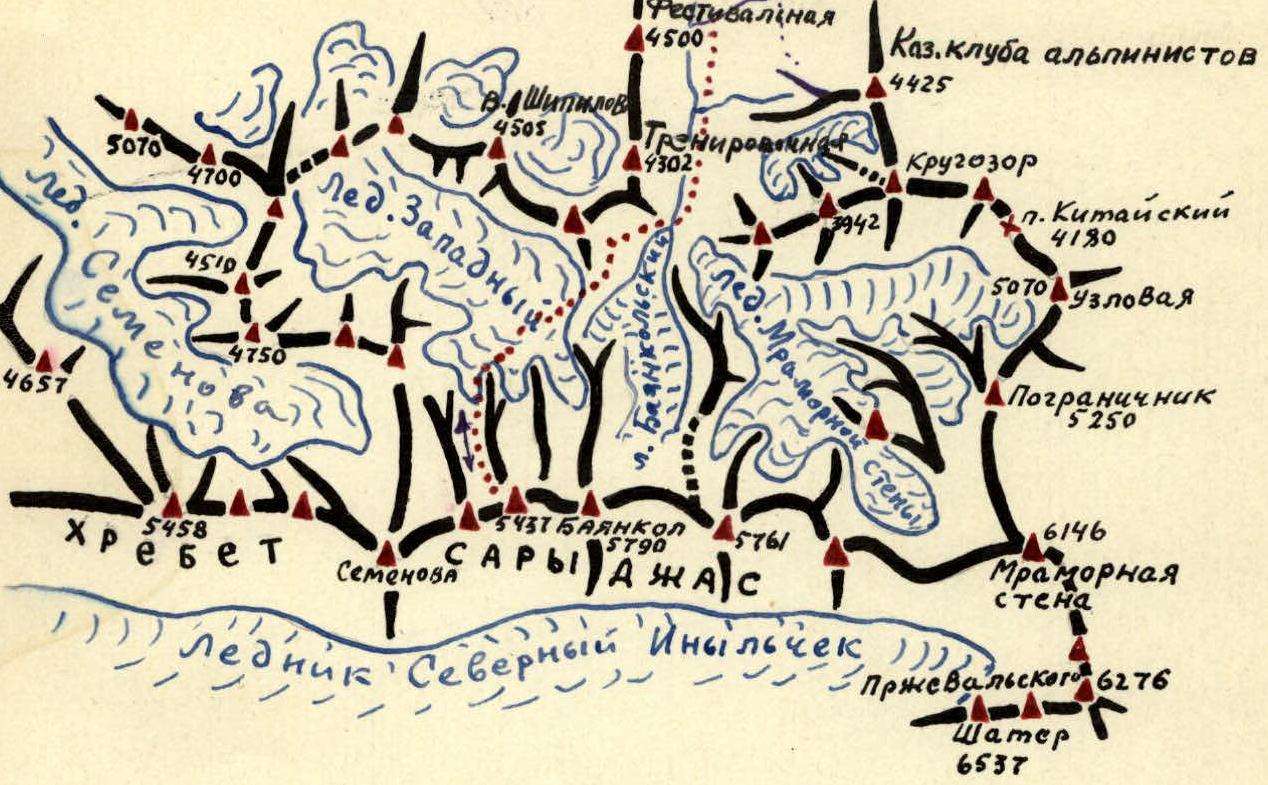 Фестивальная
4500
Каз. клуба альпинистов
4425
В. Шипилов
4505
5070
4700
Тренировочная
4302
Кругозор
3942
п. Китайский
4180
Лед. Семенова
Лед. Западный
л. Баянкольский
Лед. Мраморной стены
4510
5070
Узловая
4750
4657
Пограничник
5250
5458
5437
Баянкол
5790
5761
6146
Семенова
Мраморная
стена
ХРЕБЕТ САРЫДЖАС
Ледник Северный Иныльчек
Пржевальского
6276
Шатер
6537